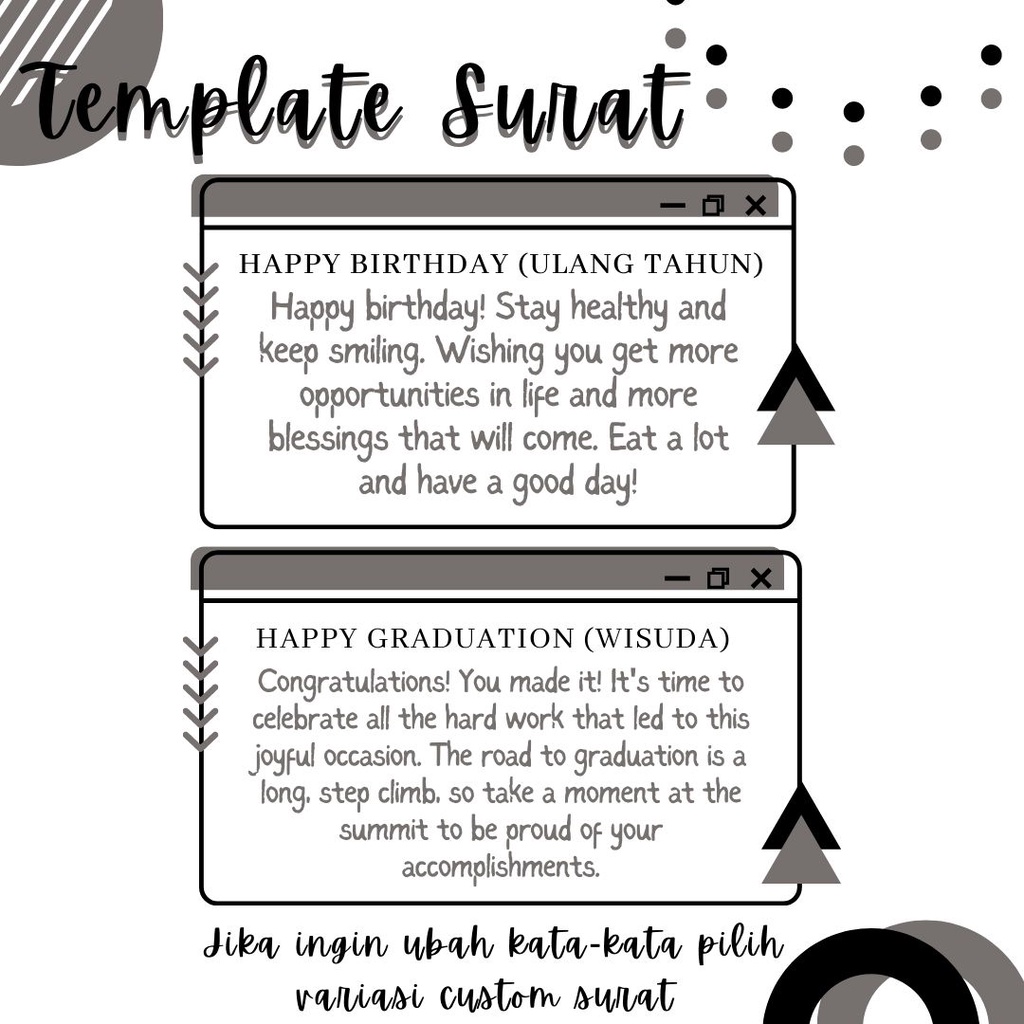 Template Surat
HAPPY BIRTHDAY (ULANG TAHUN)
Happy birthday! Stay healthy and
keep smiling. Wishing you get more
opportunities in life and more
blessings that will come. Eat a lot
and have a good day!
HAPPY GRADUATION (WISUDA)
Congratulations! You made it! It's time to
celebrate all the hard work that led to this
joyful occasion. The road to graduation is a
long, step climb, so take a moment at the
summit to be proud of your
accomplishments.
Jika ingin ubah kata-kata pilih
variasi custom surat